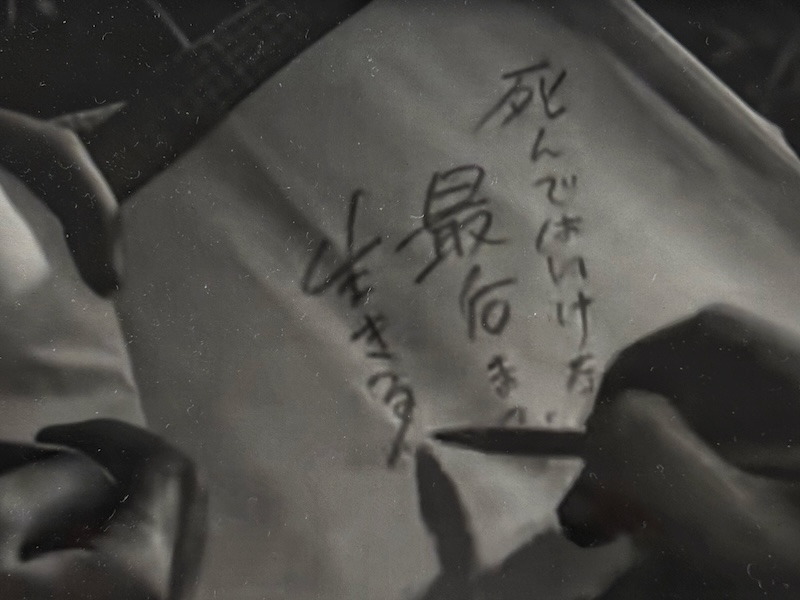 死んではいけな
最后まで
生きる